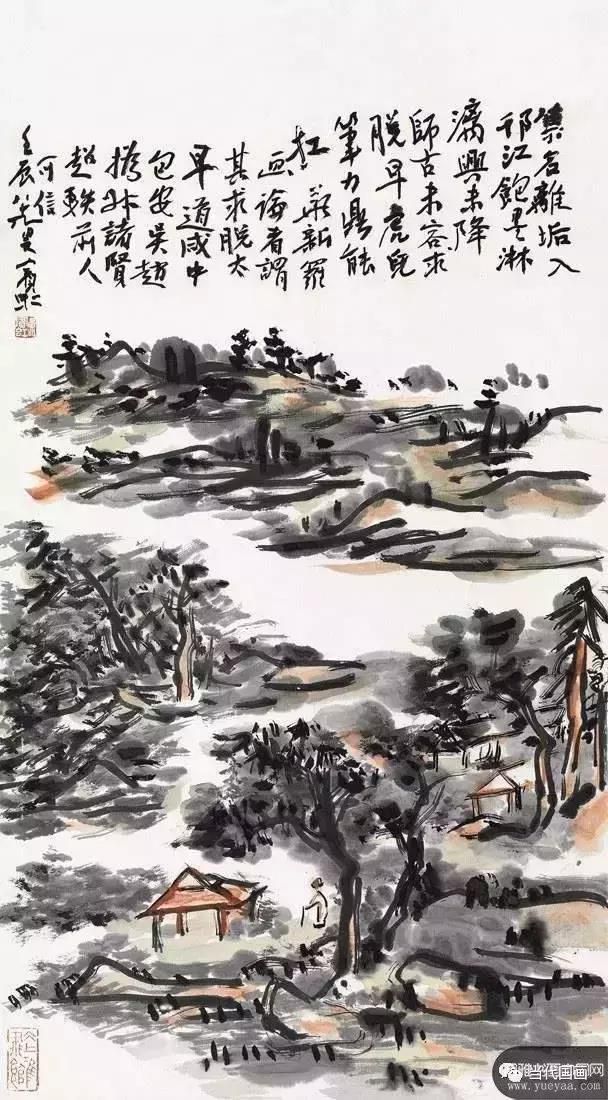 集名離垢入
邗江飽墨淋
漓興未降
師古未容求
脱早虎兒
筆力鼎能
扛 華新羅
画論者謂
其求脱太
早道咸中
包安吳趙
撝叔諸賢
超軼前人
可信
壬辰 叟賓虹
当代国画
www.yueyaa.com